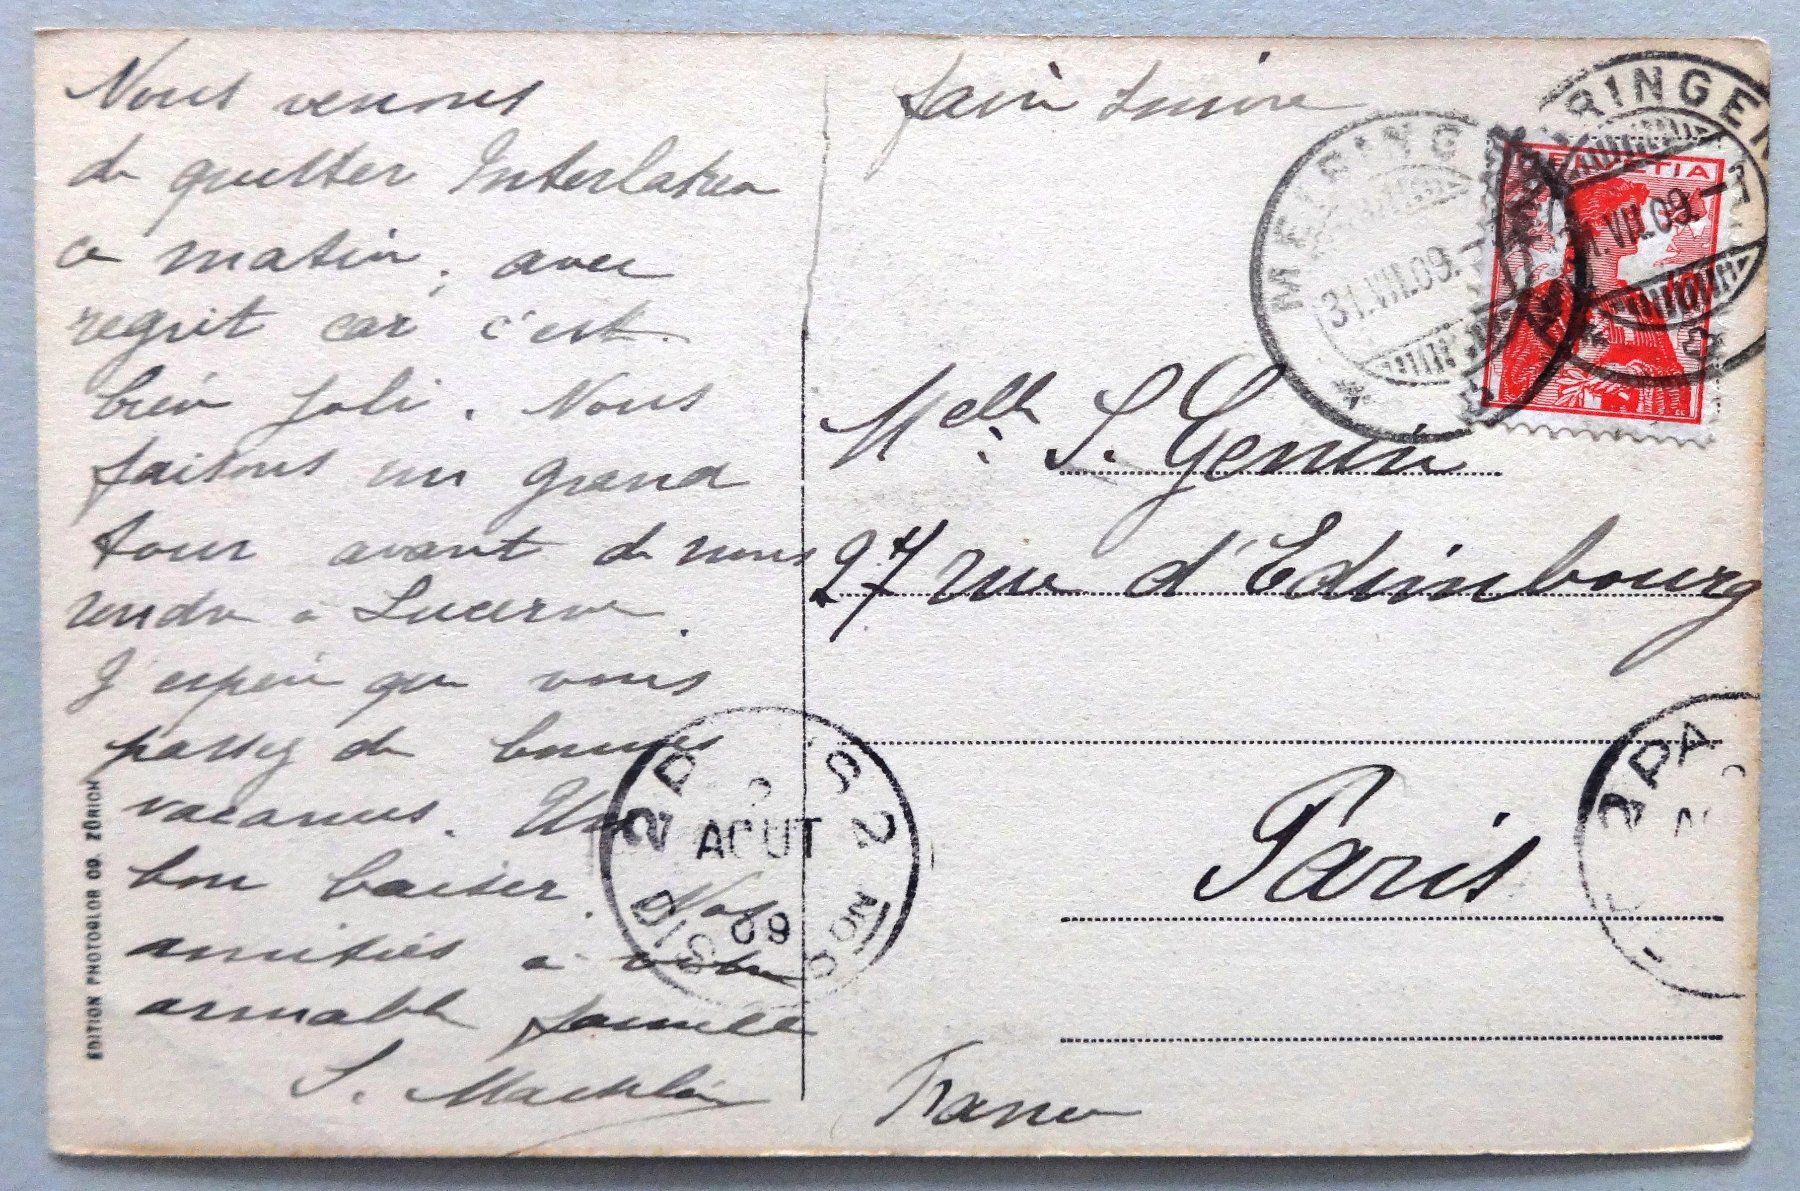 Nous venons
de quitter Interlaken
ce matin, avec
regret car c'est
bien joli. Nous
faisons un grand
tour avant de nous
rendre à Lucerne.
J'espère que vous
passez de bonnes
vacances. Un
bon baiser. Nos
amitiés à votre
aimable famille
S.
EDITION PHOTOGLOB CO. ZÜRICH
faire suivre
MEIRINGEN
31.VII.09.
MEIRINGEN
31.VII.09.-7
HELVETIA
Melle S. Genin
27 rue d'Edimbourg
Paris
France
PARIS
2
AOUT
09
DIS
PA